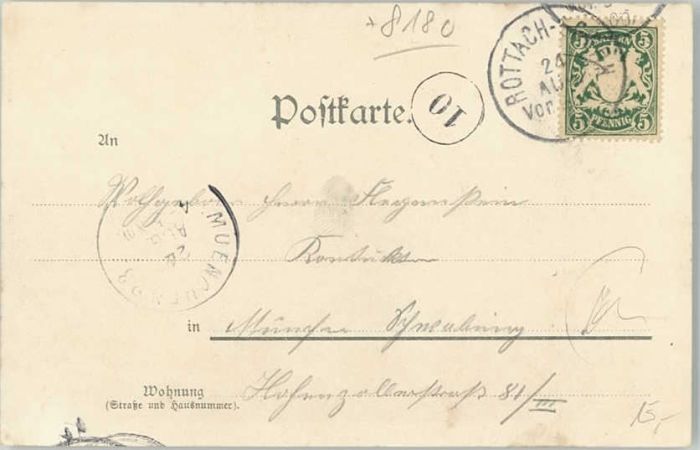 8180
ROTTACH-
24
AU
Vor
BAYERN
5 5
5 PFENNIG 5
Postkarte.
10
An
Wohlgeboren Herrn
MUENCHEN 23
24
in München Schwabing
Wohnung
(Straße und Hausnummer).
Hohenzollernstraße 81/III
15,-